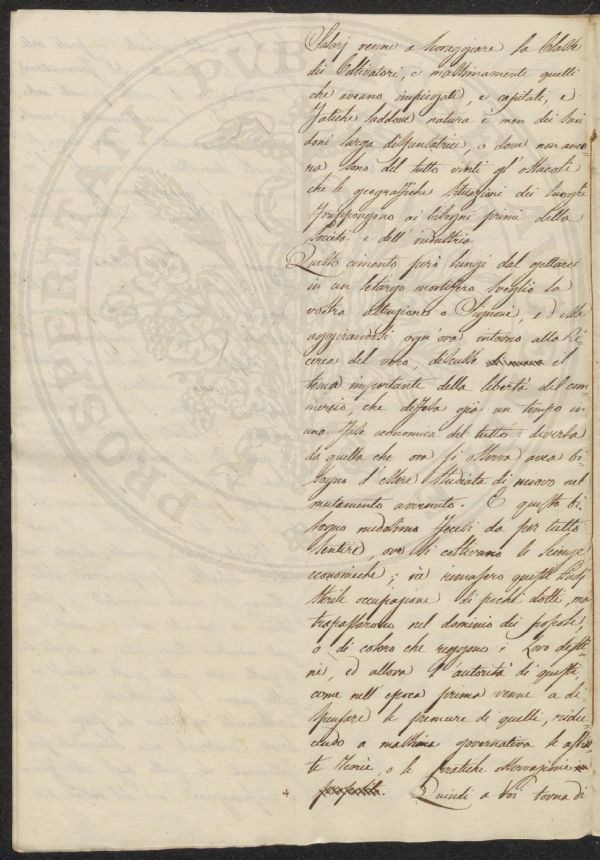 Salarj venne a scoraggiare la Classe
dei Coltivatori, e massimamente quelli
che aveano impiegati, e capitali, e
fatiche laddove natura è men dei suoi
doni larga dispensatrice, o dove non anco-
ra sono del tutto vinti gl' ostacoli
che le geografiche situazioni dei luoghi
frappongono ai bisogni primi della
Società e dell' industria
Questo cimento però lungi dal gettarci
in un letargo mortifero svegliò la
vostra attenzione o Signori, e d essa
aggirandosi ogn' ora intorno alla Ri-
cerca del vero, discusse di nuovo il
tema importante della libertà del com-
mercio, che difesa già un tempo in
una fase economica del tutto diversa
da quella che ora si osserva avea bi-
sogno d' essere studiata di nuovo nel
mutamento avvenuto. E questo bi-
sogno medesimo fecesi da per tutto
sentire, ove si coltivano le scienze
economiche; nè rimasero questi studj
sterile occupazione di pochi dotti, ma
trapassarono nel dominio dei popoli,
o di coloro che reggono i loro desti-
ni, ed allora l' autorità di questi,
come nell' epoca prima venne a di-
spensare le premure di quelli, ridu-
cendo a massima governativa le
teorie, o le pratiche osservazioni
Quindi a Voi torna di